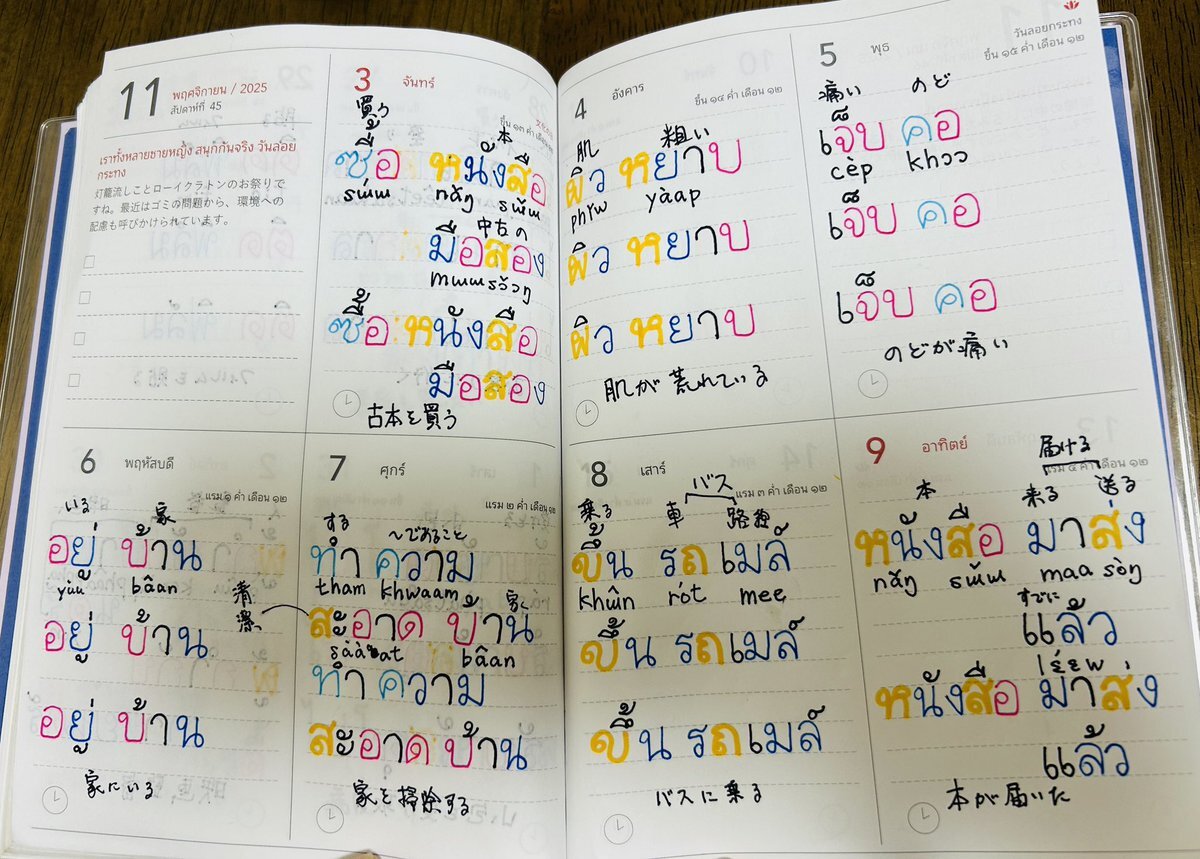 11 พฤศจิกายน / 2025
สัปดาห์ที่ 45
เราทั้งหลายชายหญิง สนุกกันจริง วันลอย
กระทง
灯籠流しことローイクラトンのお祭りで
すね。最近はゴミの問題から、環境への
配慮も呼びかけられています。
3 จันทร์
ขึ้น ๑๓ ค่ำ เดือน ๑๒
買う 本
ซื้อ หนังสือ
sɯ́ɯ nǎŋ sɯ̌ɯ
中古の
มือสอง
mɯɯsɔ̌ɔŋ
ซื้อ หนังสือ
มือสอง
古本を買う
4 อังคาร
ขึ้น ๑๔ ค่ำ เดือน ๑๒
肌 粗い
ผิว หยาบ
phǐw yàap
ผิว หยาบ
ผิว หยาบ
肌が荒れている
5 พุธ
วันลอยกระทง
ขึ้น ๑๕ ค่ำ เดือน ๑๒
痛い のど
เจ็บ คอ
cèp khɔɔ
เจ็บ คอ
เจ็บ คอ
のどが痛い
6 พฤหัสบดี
แรม ๑ ค่ำ เดือน ๑๒
いる 家
อยู่ บ้าน
yùu bâan
อยู่ บ้าน
อยู่ บ้าน
家にいる
7 ศุกร์
แรม ๒ ค่ำ เดือน ๑๒
する 〜であること
ทำ ความ
tham khwaam
清潔、 家
สะอาด บ้าน
sàʔàat bâan
ทำ ความ
สะอาด บ้าน
家を掃除する
8 เสาร์
แรม ๓ ค่ำ เดือน ๑๒
バス
乗る 車 路線
ขึ้น รถเมล์
khɯ̂n rót mee
ขึ้น รถเมล์
ขึ้น รถเมล์
バスに乗る
9 อาทิตย์
แรม ๔ ค่ำ เดือน ๑๒
届ける
本 来る 送る
หนังสือ มาส่ง
nǎŋ sɯ̌ɯ maa sòŋ
すでに
แล้ว
lɛ́ɛw
หนังสือ มาส่ง
แล้ว
本が届いた